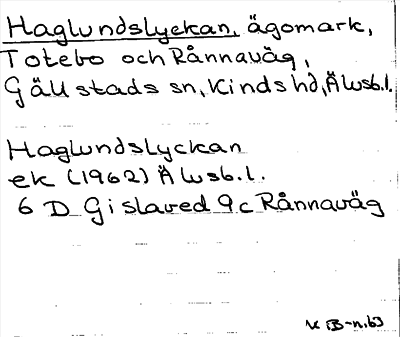 Haglundslyckan, ägomark,
Totebo och Rånnaväg,
Gällstads sn, Kinds hd, Älvsb.l.
Haglundslyckan
ek (1962) Älvsb.l.
6 D Gislaved 9c Rånnaväg